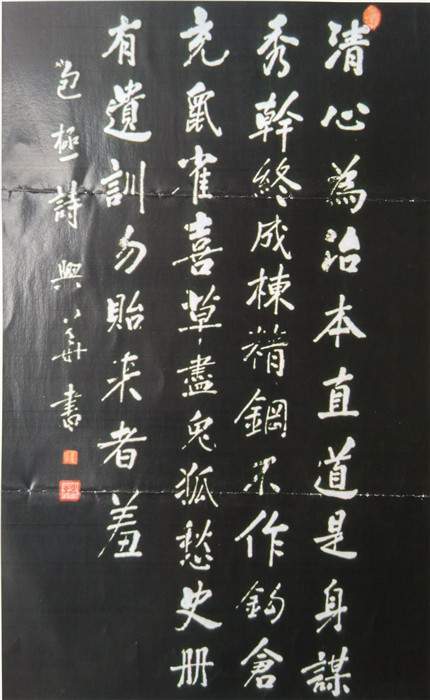 清心為治本直道是身謀
秀幹終成棟精鋼不作鈎倉
充鼠雀喜草盡兔狐愁史册
有遺訓勿貽来者羞
包極詩 興 書